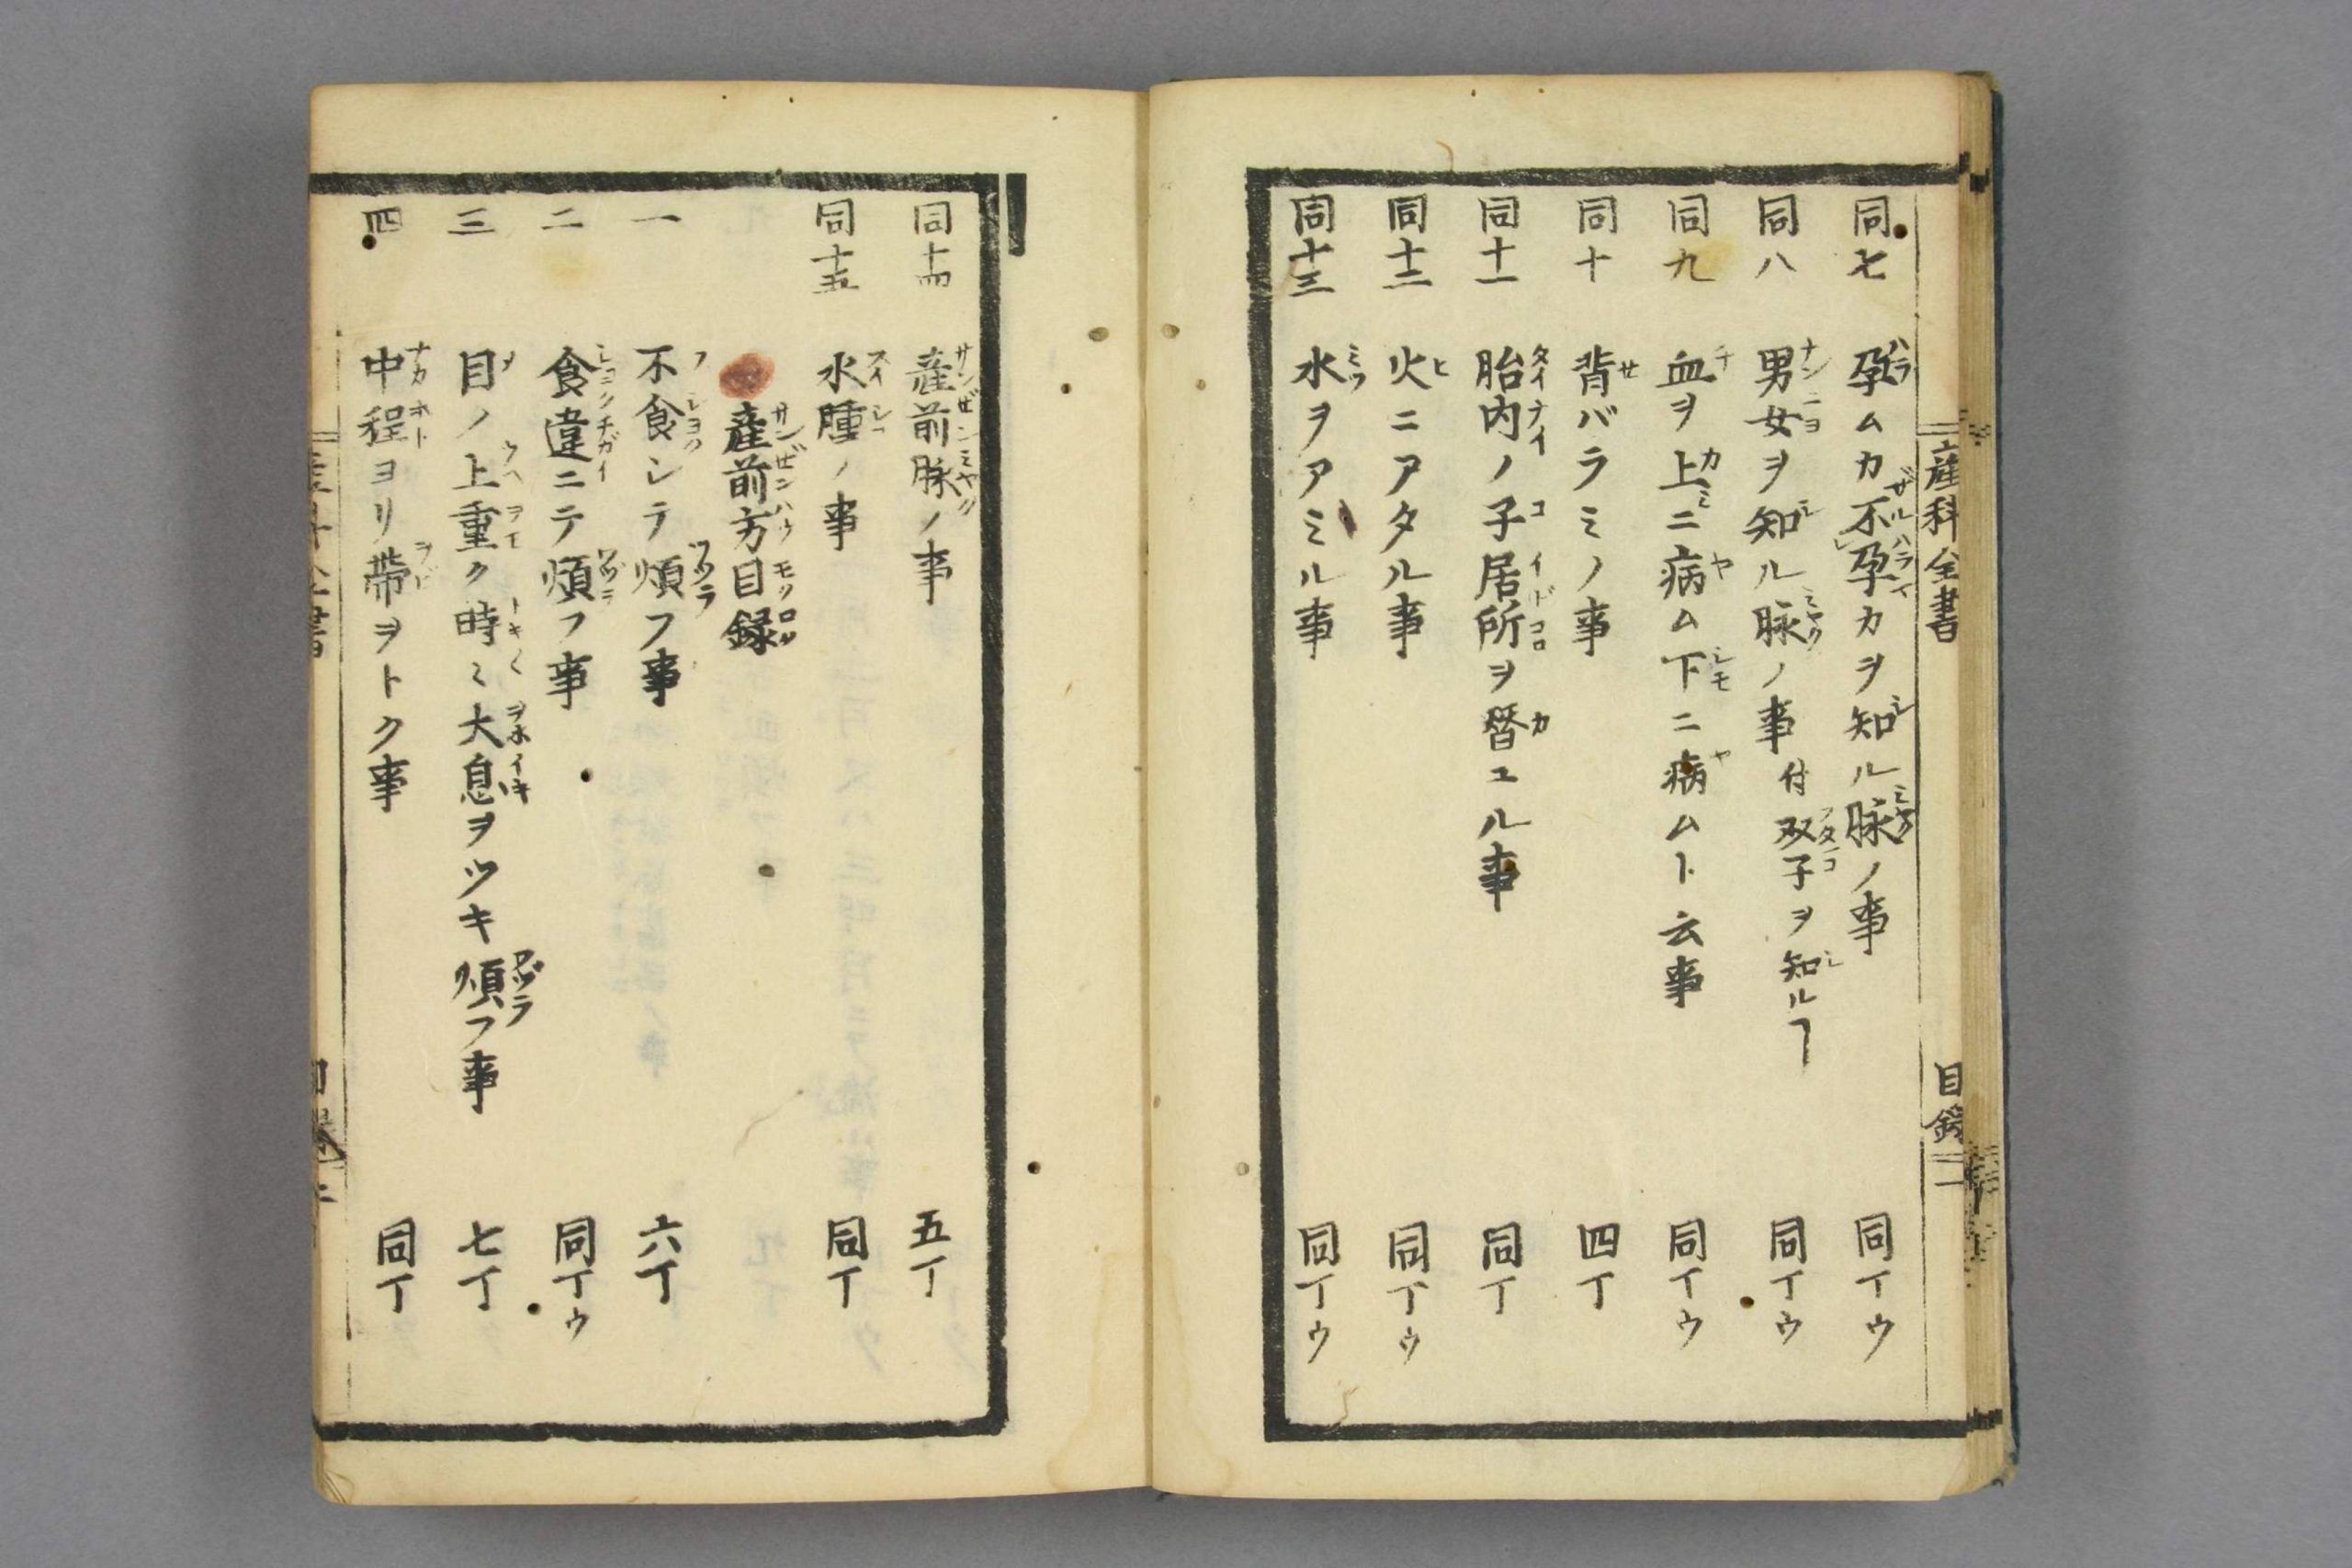 産科全書 目録 一
同七 孕ムカ不レ孕カヲ知ル脉ノ事 同丁ウ
同八 男女ヲ知ル脉ノ事 付 双子ヲ知ルヿ 同丁ウ
同九 血ヲ上ニ病ム下ニ病ムト云事 同丁ウ
同十 背バラミノ事 四丁
同十一 胎内ノ子居所ヲ替エル事 同丁
同十二 火ニアタル事 同丁ウ
同十三 水ヲアミル事 同丁ウ
同十四 産前脉ノ事 五丁
同十五 水腫ノ事 同丁
産前方目録
一 不食シテ煩フ事 六丁
二 食違ニテ煩フ事 同丁ウ
三 目ノ上重ク時〻大息ヲツキ煩フ事 七丁
四 中程ヨリ帯ヲトク事 同丁